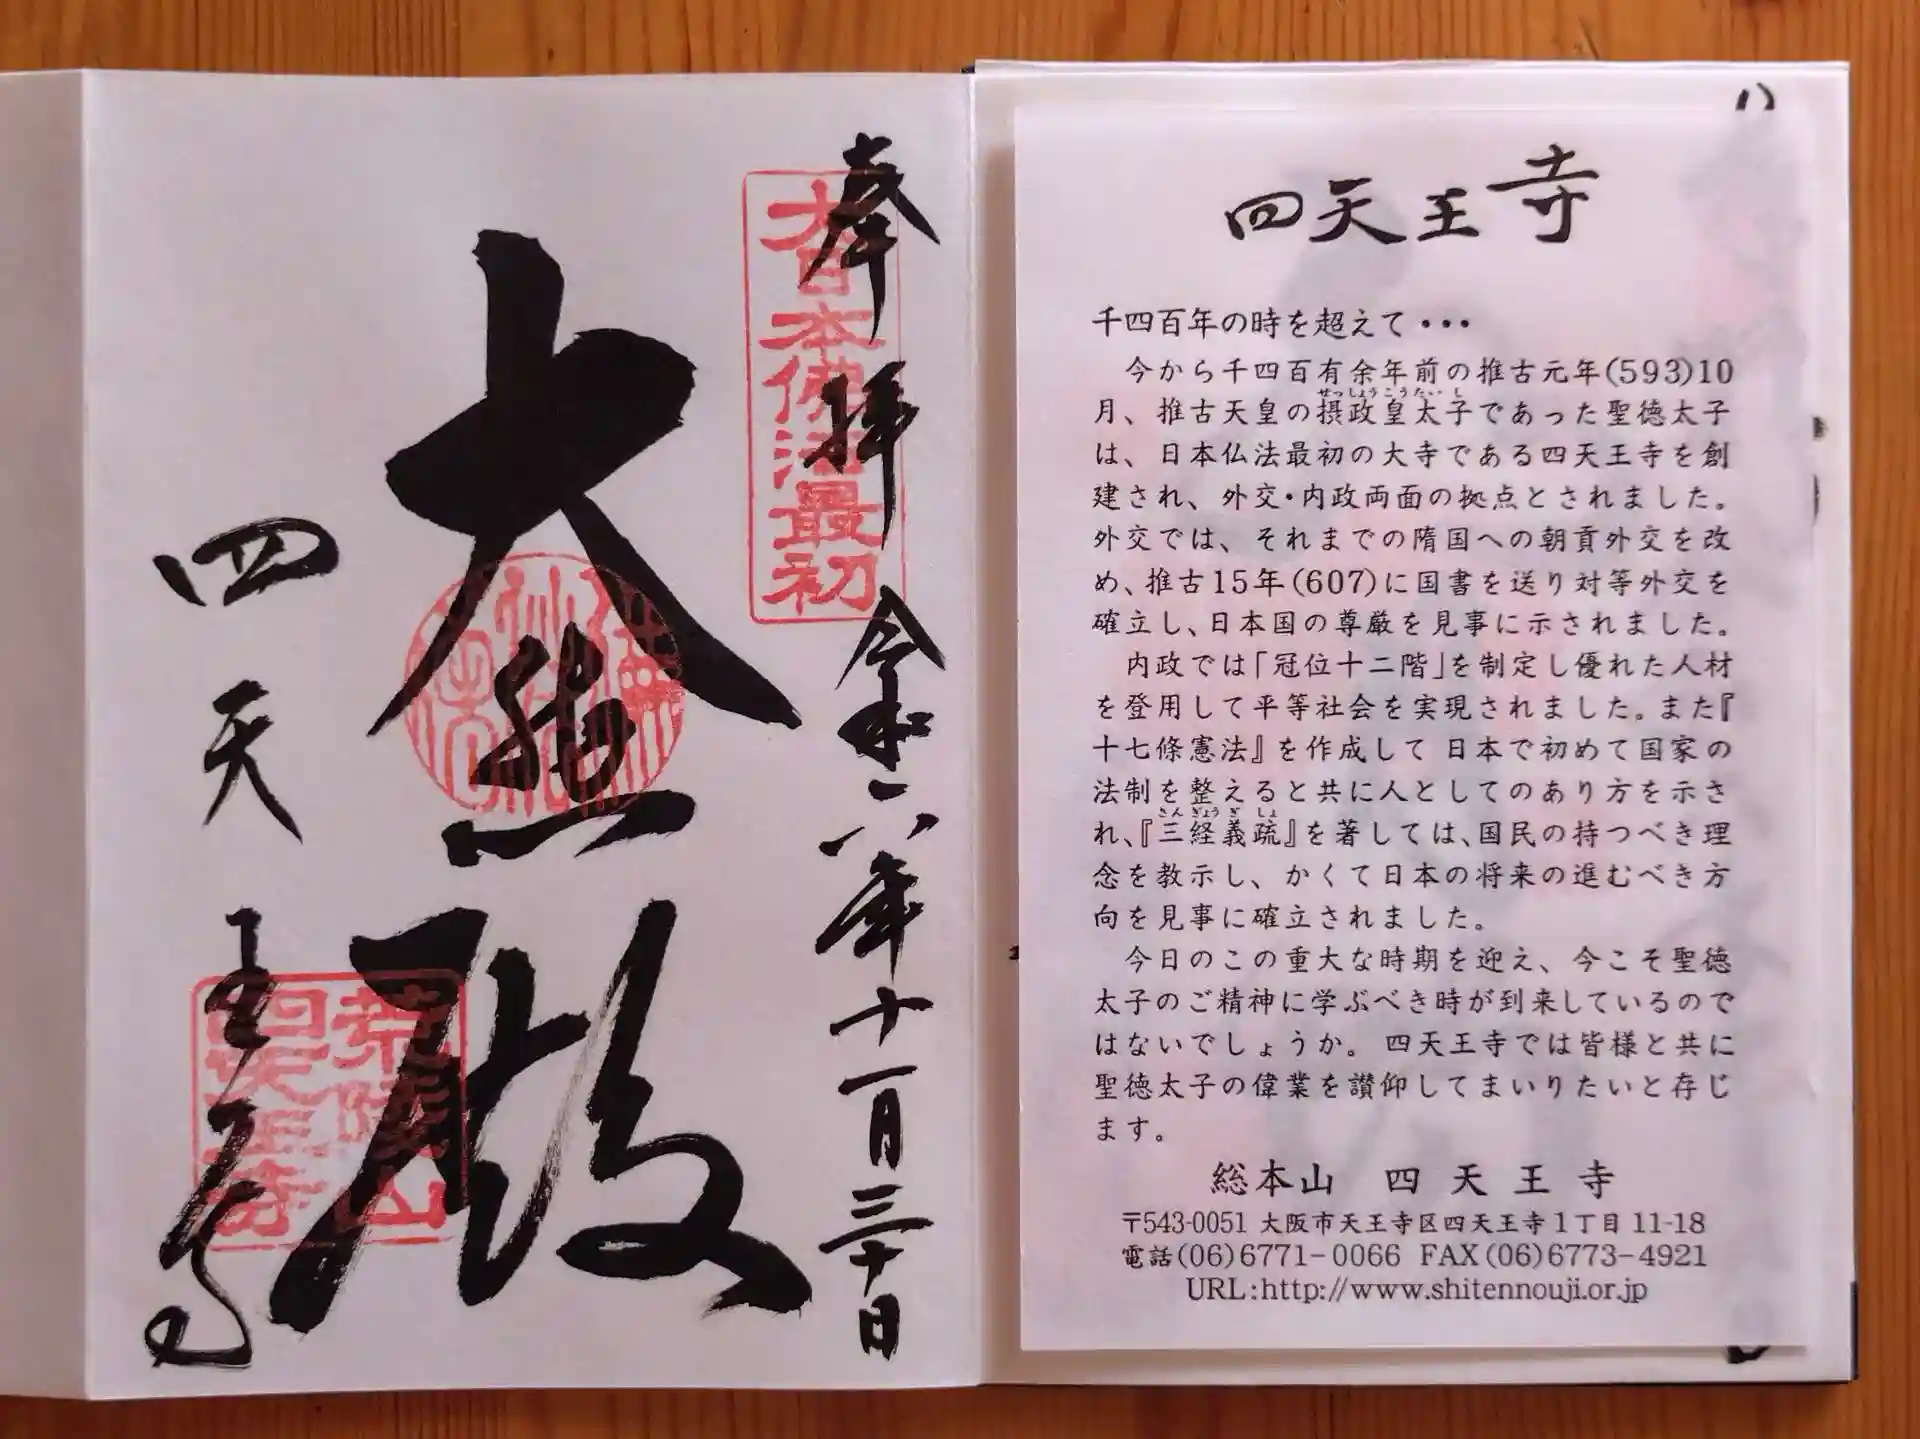 奉拝
大日本佛法最初
令和六年十一月三十日
大悲殿
四天王寺
荒陵山
四天王寺
四天王寺
千四百年の時を超えて・・・
今から千四百有余年前の推古元年(593)10
月、推古天皇の摂政皇太子であった聖徳太子
せっしょうこうたいし
は、日本仏法最初の大寺である四天王寺を創
建され、外交・内政両面の拠点とされました。
外交では、それまでの隋国への朝貢外交を改
め、推古15年(607)に国書を送り対等外交を
確立し、日本国の尊厳を見事に示されました。
内政では「冠位十二階」を制定し優れた人材
を登用して平等社会を実現されました。また『
十七條憲法』を作成して 日本で初めて国家の
法制を整えると共に人としてのあり方を示さ
さんぎょうぎしょ
れ、『三経義疏』を著しては、国民の持つべき理
念を教示し、かくて日本の将来の進むべき方
向を見事に確立されました。
今日のこの重大な時期を迎え、今こそ聖徳
太子のご精神に学ぶべき時が到来しているので
はないでしょうか。四天王寺では皆様と共に
聖徳太子の偉業を讃仰してまいりたいと存じ
ます。
総本山 四天王寺
〒543-0051 大阪市天王寺区四天王寺1丁目11-18
電話(06)6771-0066 FAX(06)6773-4921
URL:http://www.shitennouji.or.jp